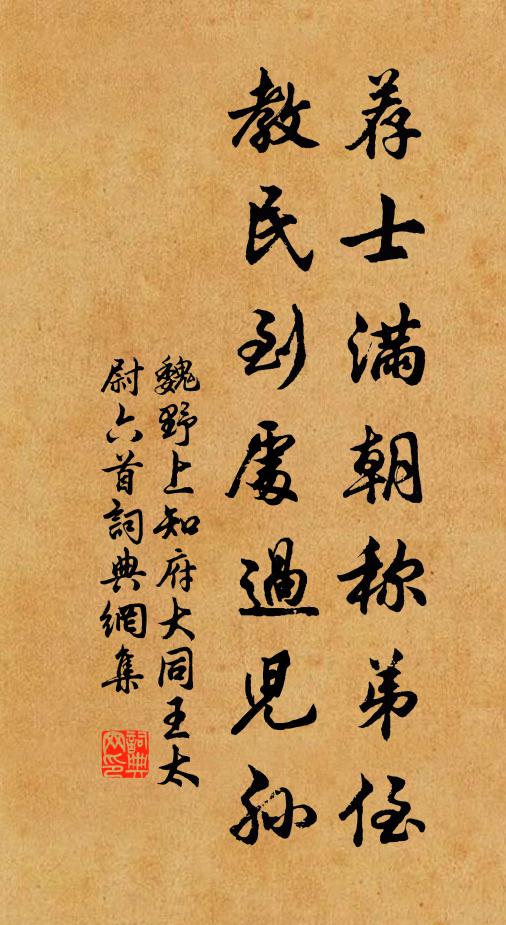 荐士满朝称弟侄
教民到處過児孫
魏野上知府大同王太
尉六首詞典網集
詞典網印